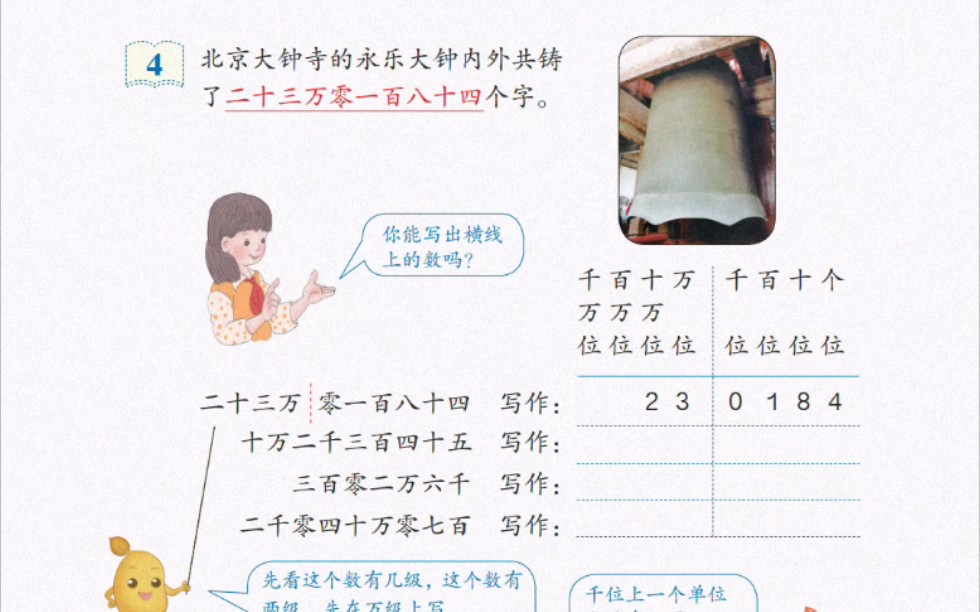 4
北京大钟寺的永乐大钟内外共铸
了二十三万零一百八十四个字。
你能写出横线
上的数吗？
千百十万 千百十个
万万万
位位位位 位位位位
二十三万 零一百八十四 写作： 2 3 0 1 8 4
十万二千三百四十五 写作：
三百零二万六千 写作：
二千零四十万零七百 写作：
先看这个数有几级，这个数有
两级，先在万级上写
千位上一个单位